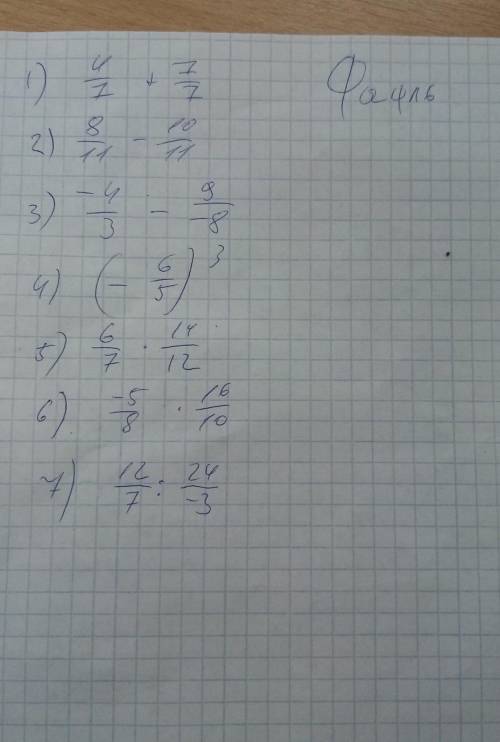 1) 4/7 + 7/7
2) 8/11 - 10/11
3) -4/3 - 9/-8
4) (- 6/5)^3
5) 6/7 · 14/12
6) -5/8 · 16/10
7) 12/7 : 24/-3